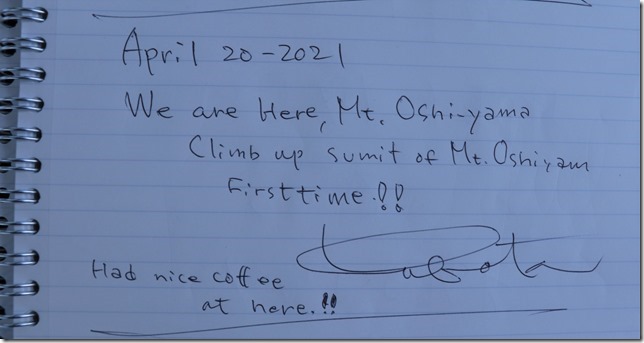 April 20-2021
We are Here, Mt. Oshi-yama
Climb up sumit of Mt. Oshiyam
First time!!
Had nice coffee
at here.!!